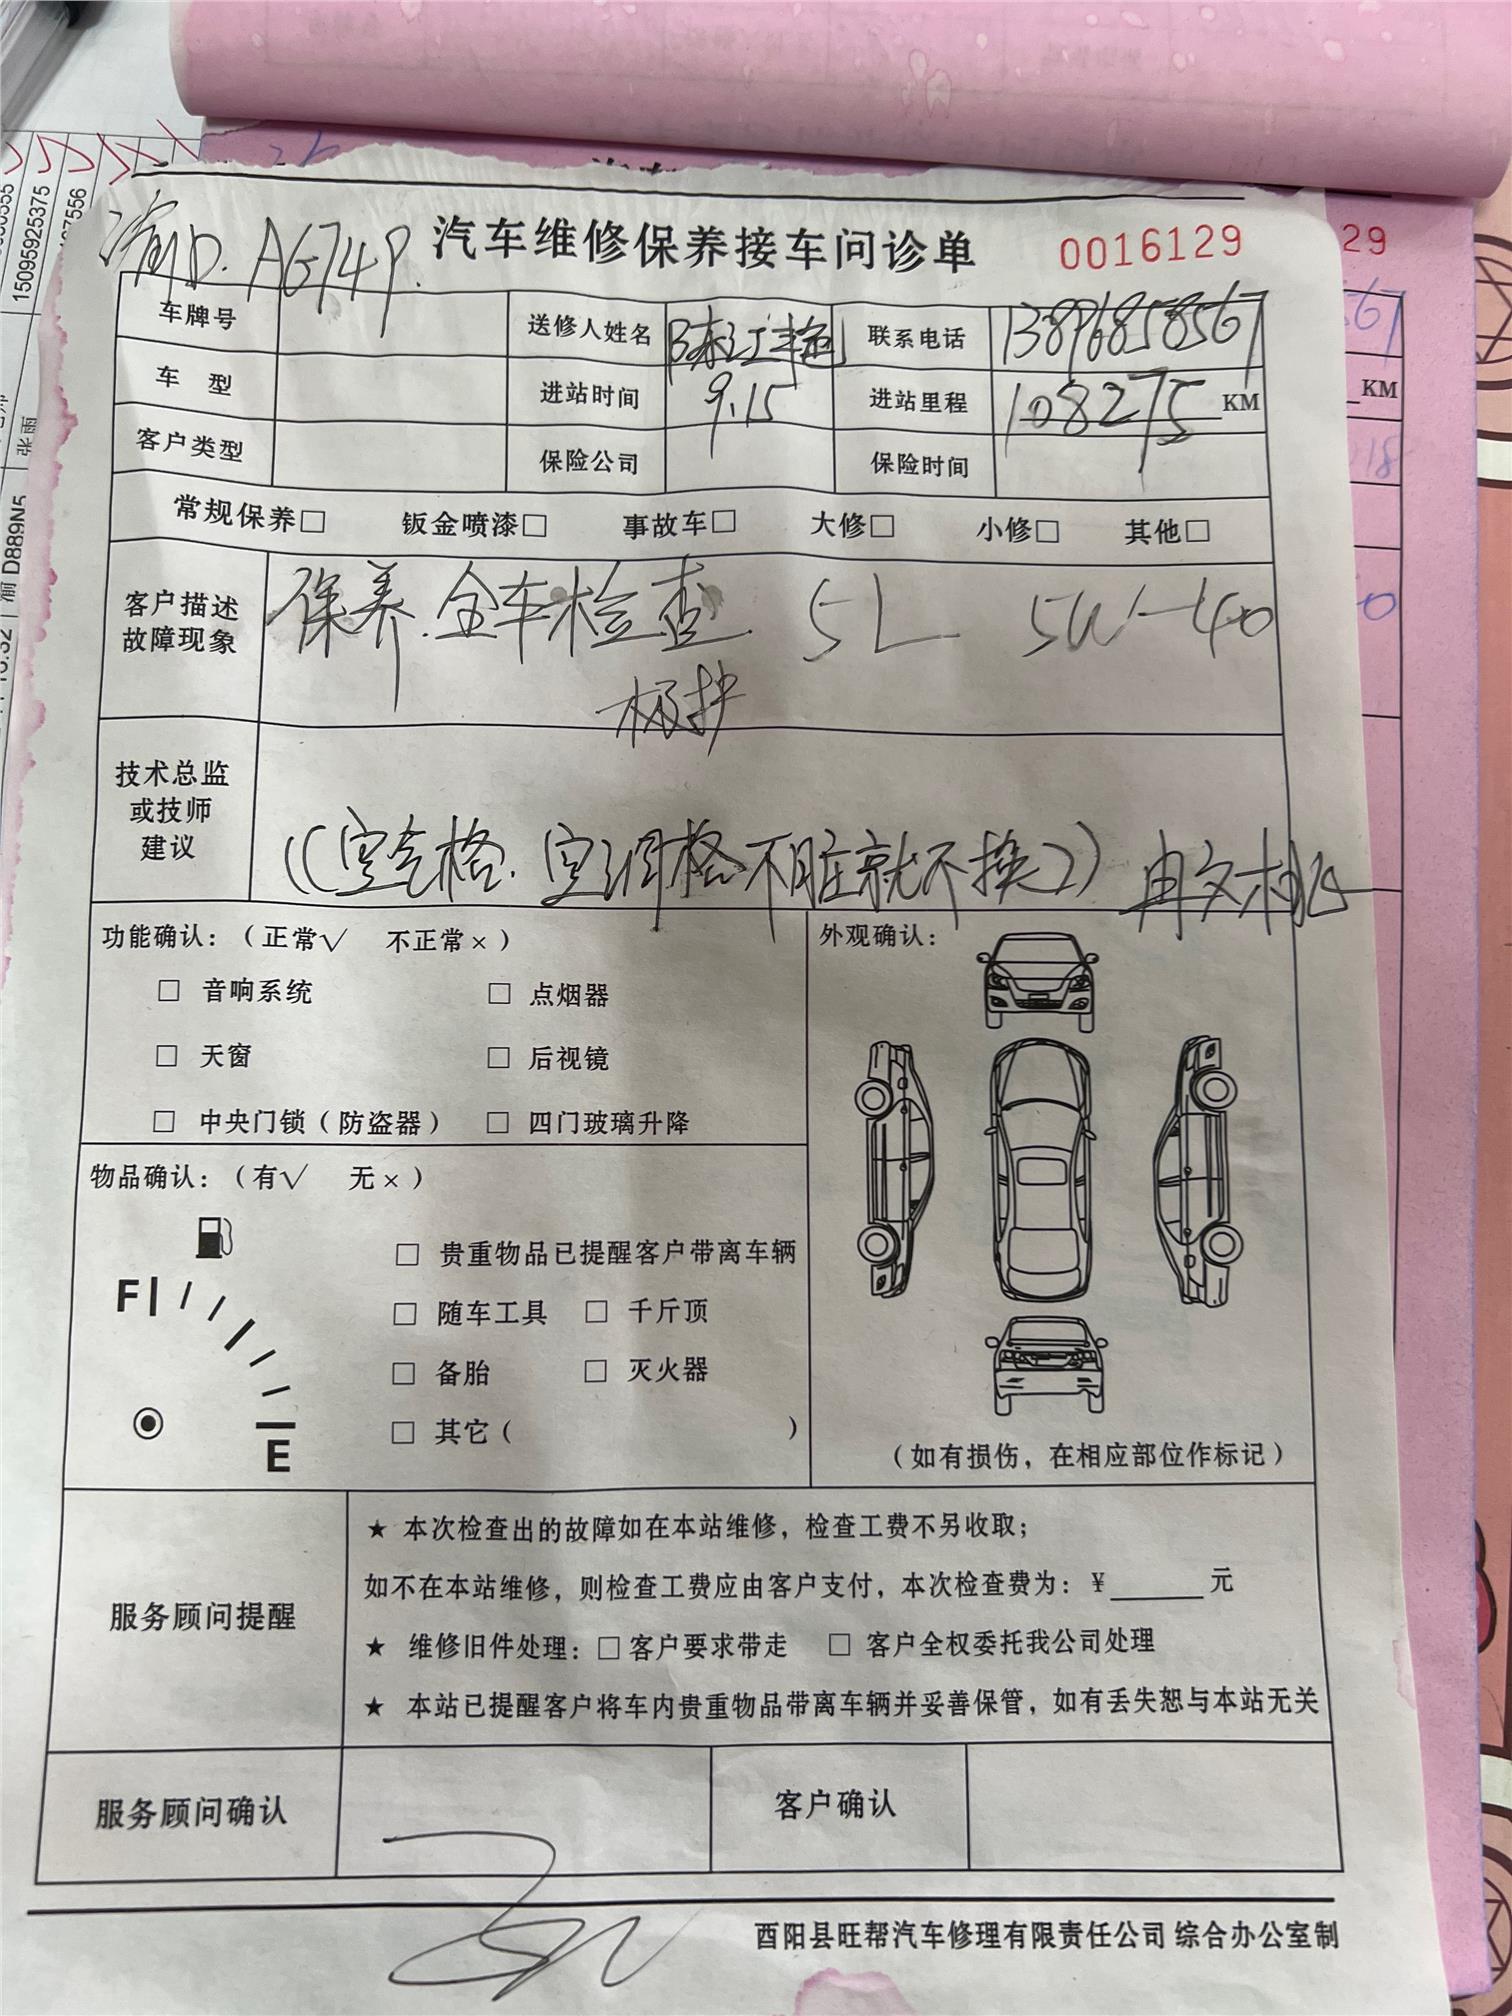 汽车维修保养接车问诊单 0016129
29
渝D.AG749
车牌号 送修人姓名 陈江艳 联系电话 13896858567
车 型 进站时间 9.15 进站里程 108275 KM
KM
客户类型 保险公司 保险时间
常规保养□ 钣金喷漆□ 事故车□ 大修□ 小修□ 其他□
客户描述
故障现象
保养.全车检查 5L 5W-40
极护
技术总监
或技师
建议
((空气格.空调格不脏就不换))
功能确认：（正常√ 不正常×）
□ 音响系统 □ 点烟器
□ 天窗 □ 后视镜
□ 中央门锁（防盗器） □ 四门玻璃升降
外观确认：
（如有损伤，在相应部位作标记）
物品确认：（有√ 无×）
F
E
□ 贵重物品已提醒客户带离车辆
□ 随车工具 □ 千斤顶
□ 备胎 □ 灭火器
□ 其它（ ）
服务顾问提醒
★ 本次检查出的故障如在本站维修，检查工费不另收取；
如不在本站维修，则检查工费应由客户支付，本次检查费为：¥______元
★ 维修旧件处理：□客户要求带走 □ 客户全权委托我公司处理
★ 本站已提醒客户将车内贵重物品带离车辆并妥善保管，如有丢失恕与本站无关
服务顾问确认 客户确认
酉阳县旺帮汽车修理有限责任公司 综合办公室制
15095925375
张雨
渝D889N5